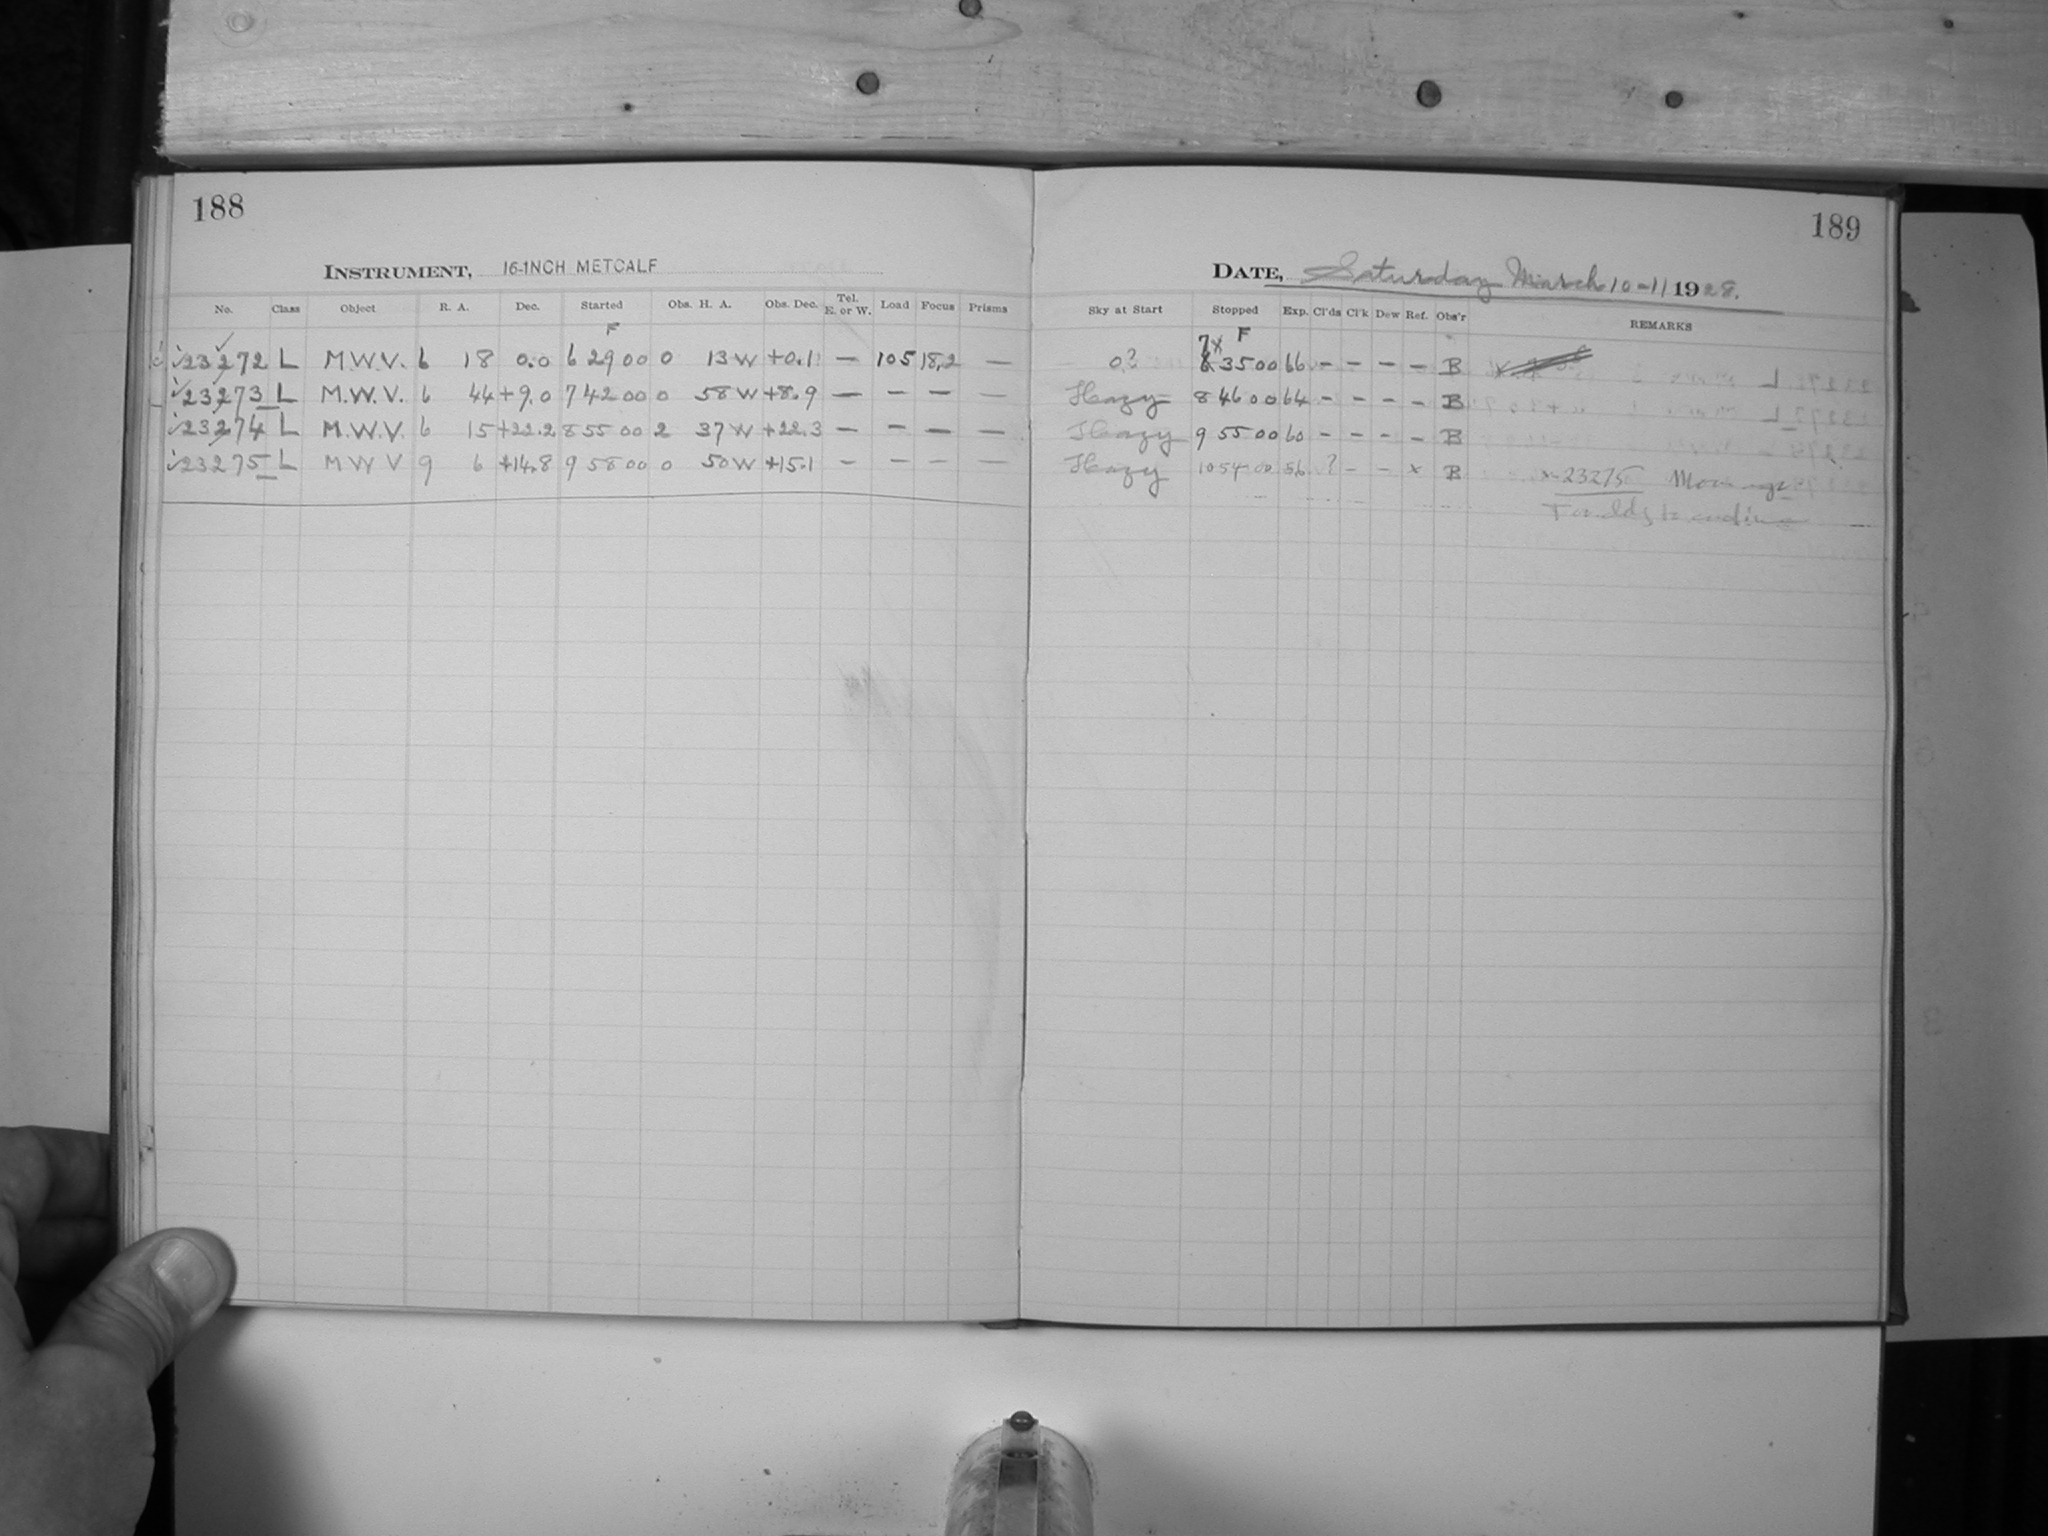 188
INSTRUMENT, 16-INCH METCALF
No. Class Object R. A. Dec. Started Obs. H. A. Obs. Dec. Tel. E. or W. Load Focus Prisms
F
23272 L M.W.V. 6 18 0.0 6 29 00 0 13 W +0.1 — 105 18.2 —
23273 L M.W.V. 6 44 +9.0 7 42 00 0 58 W +8.9 — — — —
23274 L M.W.V. 6 15 +22.2 8 55 00 2 37 W +22.3 — — — —
23275 L M W V 9 6 +14.8 9 58 00 0 50 W +15.1 — — — —
189
DATE, Saturday March 10-11 1928.
Sky at Start Stopped Exp. Cl'ds Cl'k Dew Ref. Obs'r REMARKS
7x F
0? 8 35 00 66 – – – – B
Hazy 8 46 00 64 – – – – B
Hazy 9 55 00 60 – – – – B
Hazy 10 54 00 56 ? – – x B x-23275